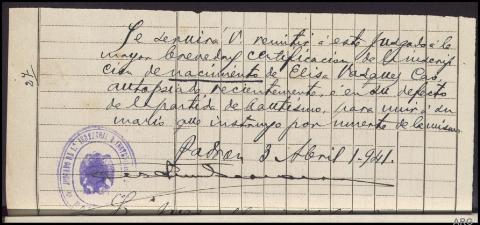 Se servirá V. remitir á este Juzgado á la
mayor brevedad certificación de la inscrip-
cion de nacimiento de Elisa Vazquez Cao,
autopsiada recientemente, é en su defecto
de la partida de bautismo, para unir á su
mario que instruyo por muerte de la misma.
Padron 3 Abril 1.941.
27
ARG